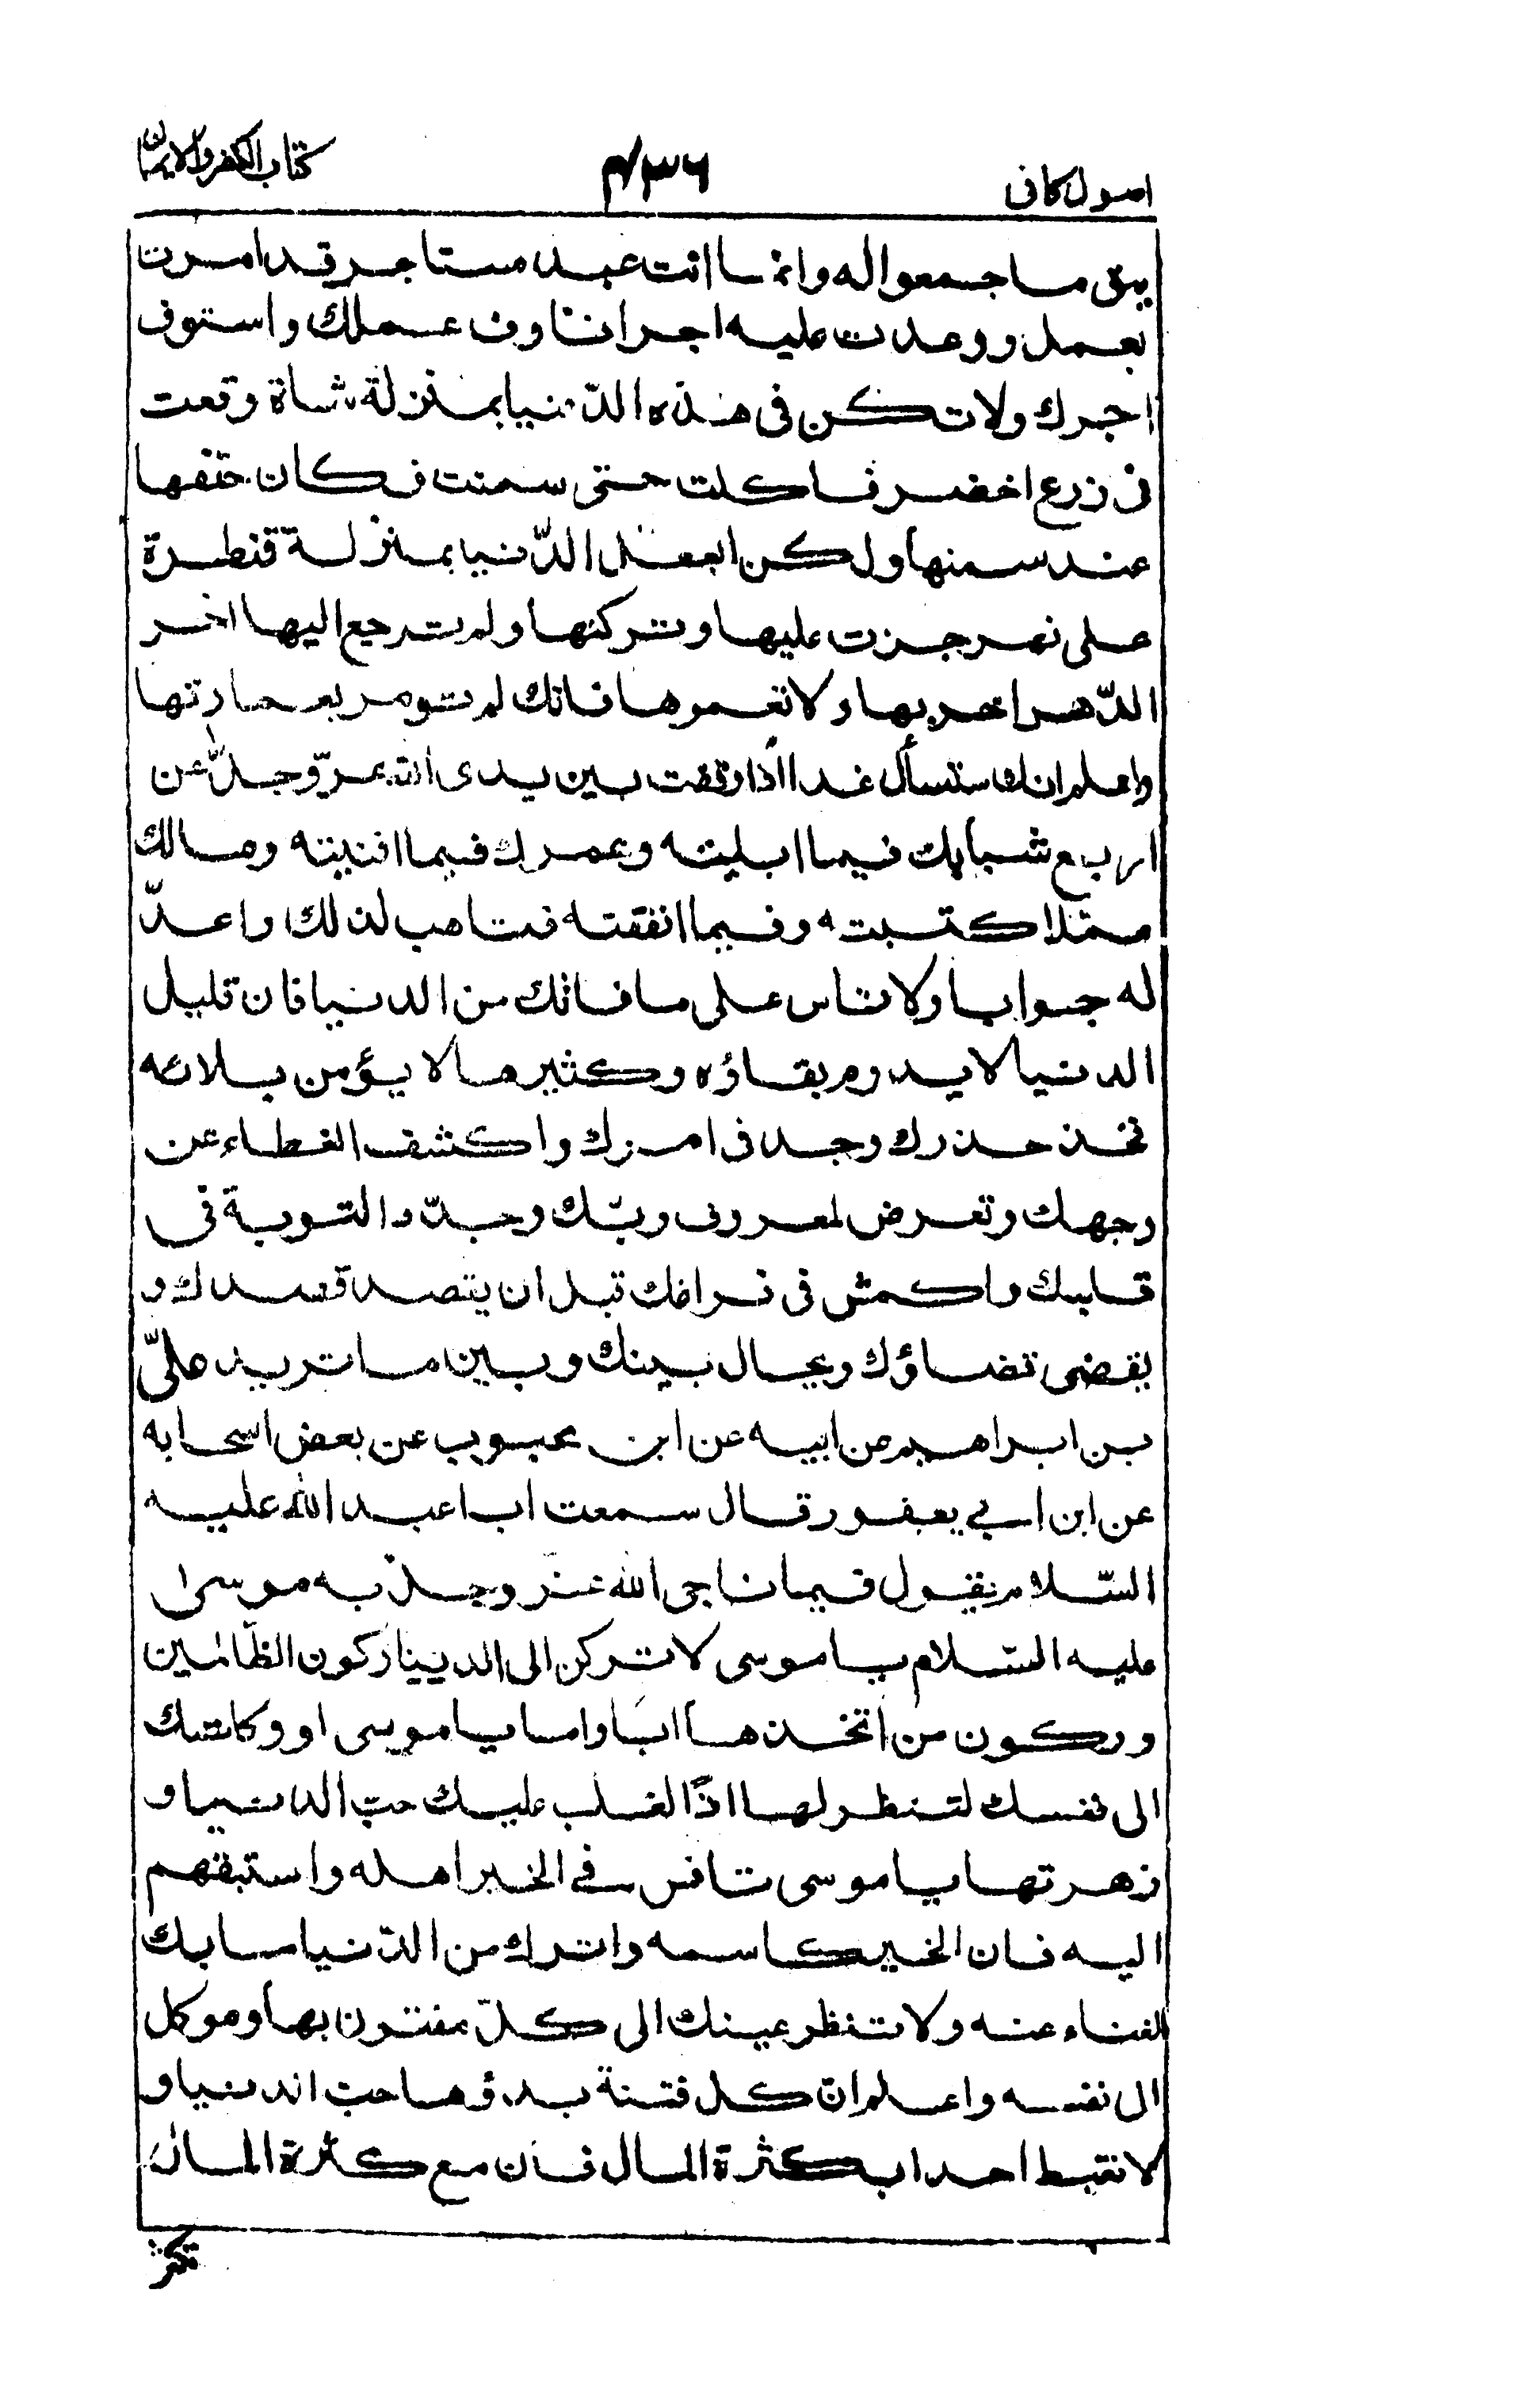 اصول کافی ۴۳۶ کتاب الکفر والایمان
یبق ما جمعوا له وانما انت عبد مستاجر قد امرت
بعمل ووعدت علیه اجرا فاوف عملك واستوف
اجرك ولا تكن فی هذه الدّنیا بمنزلة شاة وقعت
فی زرع اخضر فاكلت حتی سمنت فكان حتفها
عند سمنها ولكن اجعل الدّنیا بمنزلة قنطرة
علی نهر جزت علیها وتركتها ولم ترجع الیها اخر
الدّهر اخربها ولا تعمرها فانك لم تومر بعمارتها
واعلم انك ستسأل غدا اذا وقفت بین یدی الله عزّ وجلّ عن
اربع شبابك فیما ابلیته وعمرك فیما افنیته ومالك
ممّا اكتسبته وفیما انفقته فتاهب لذلك واعدّ
له جوابا ولا تاس علی ما فاتك من الدنیا فان قلیل
الدنیا لا یدوم بقاؤه وكثیرها لا یؤمن بلائه
فخذ حذرك وجد فی امرك واكشف الغطاء عن
وجهك وتعرض لمعروف ربّك وجدّد التوبة فی
قلبك واكمش فی فراغك قبل ان یقصد قصدك و
یقضی قضاؤك ویحال بینك وبین ما ترید علیّ
بن ابراهیم عن ابیه عن ابن محبوب عن بعض اصحابه
عن ابن ابی یعفور قال سمعت ابا عبد الله علیه
السّلام یقول فیما ناجی الله عزّ وجلّ به موسی
علیه السّلام یا موسی لا تركن الی الدنیا ركون الظّالمین
وركون من اتّخذها ابا واما یا موسی لو وكلتك
الی نفسك لتنظر لها اذًا لغلب علیك حبّ الدنیا و
زهرتها یا موسی نافس فے الخیر اهله واستبقهم
الیه فان الخیر كاسمه واترك من الدّنیا ما بك
الغناء عنه ولا تنظر عینك الی كلّ مفتون بها وموكل
الی نفسه واعلم انّ كل فتنة بدؤها حبّ الدنیا و
لا تغبط احدا بكثرة المال فان مع كثرة المال
تكثر